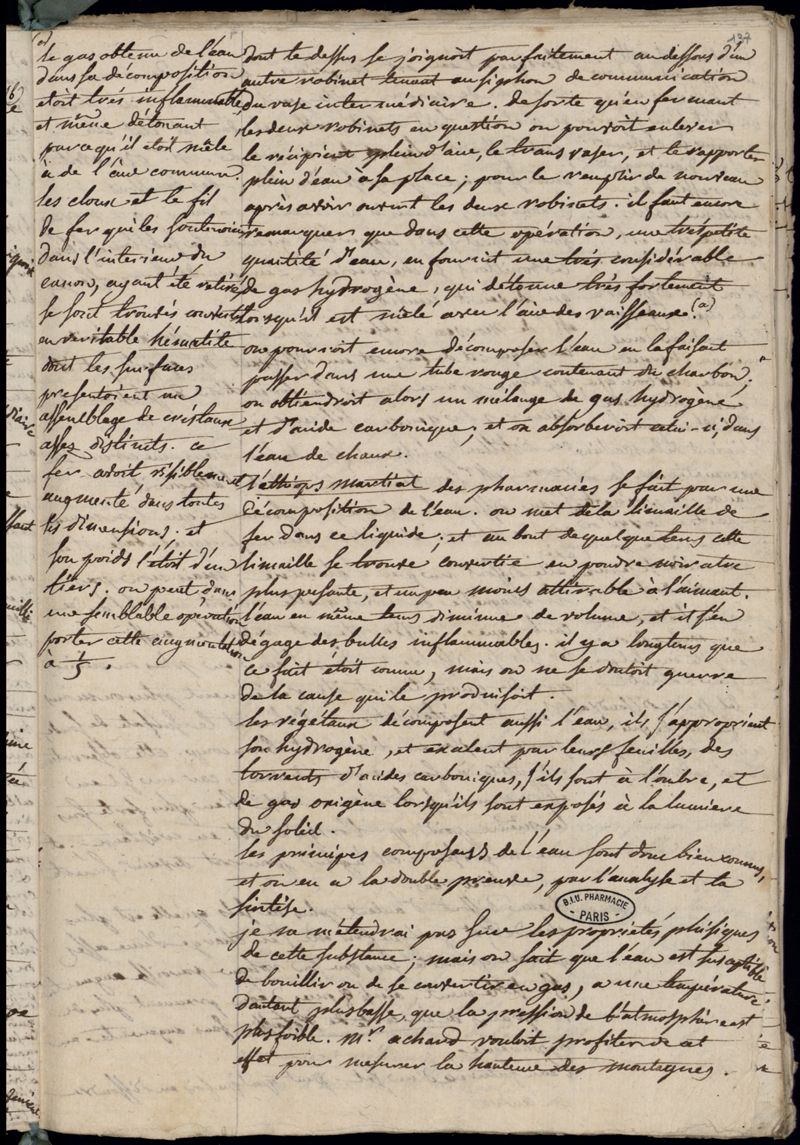 137
(a)
le gas obtenu de l'eau
dans sa décomposition
étoit très inflammable,
et même détonant
parcequ'il étoit mêlé
à de l'aire commun.
les cloux et le fil
de fer qui les soutenoient
dans l'interieur du
canon, ayant été retirés
se sont trouvés convertis
en veritable hématite
dont les surfaces
presentoient un
assemblage de cristaux
assez distincts. ce
fer avoit visiblement
augmenté dans toutes
ses dimensions, et
son poids l'étoit d'un
tiers. on peut dans
une semblable opération
porter cette augmentation
à 1/5.
dont le dessus se joignoit parfaitement au dessous d'un
autre robinet tenant au siphon de communication
du vase intermédiaire. de sorte qu'en fermant
les deux robinets en question on pouvoit enlever
le récipient plein d'aire, le transvaser, et le rapporter
plein d'eau à sa place; pour le remplir de nouveau
après avoir ouvert les deux robinets. il faut encore
remarquer que dans cette opération, une très petite
quantité d'eau, en fournit une très considérable
de gas hydrogène, qui détonne très fortement
lorsqu'il est mêlé avec l'aire des vaisseaux. (a)
on pourroit encore décomposer l'eau en la faisant
passer dans une tube rouge contenant du charbon;
on obtiendroit alors un mélange de gas hydrogène
et d'acide carbonique; et on absorberoit celui-ci dans
l'eau de chaux.
l'ethiops martial des pharmacies se fait par une
décomposition de l'eau. on met de la limaille de
fer dans ce liquide; et au bout de quelque tems cette
limaille se trouve convertie en poudre noiratre
plus pesante, et un peu moins attirable à l'aimant.
l'eau en même tems diminue de volume, et il s'en
dégage des bulles inflammables. il y a longtems que
ce fait étoit connu, mais on ne se doutoit guerre
de la cause qui le produisoit.
les végétaux décomposent aussi l'eau, ils s'approprient
son hydrogène, et exalent par leurs feuilles, des
torrents d'acides carboniques, s'ils sont à l'ombre, et
de gas oxigène lorsqu'ils sont exposés à la lumiere
du soleil.
les principes composans de l'eau sont donc bien connus,
et on en a la double preuve, par l'analyse et la
sintèse.
je ne m'étendrai pas sur les propriétés phisiques
de cette substance; mais on sait que l'eau est susceptible
de bouillir ou de se convertir en gas, a une température
d'autant plus basse, que la pression de l'atmosphère est
plus foible. mr. achard vouloit profiter de cet
effet pour mesurer la hauteur des montagnes.
B.I.U. PHARMACIE
PARIS